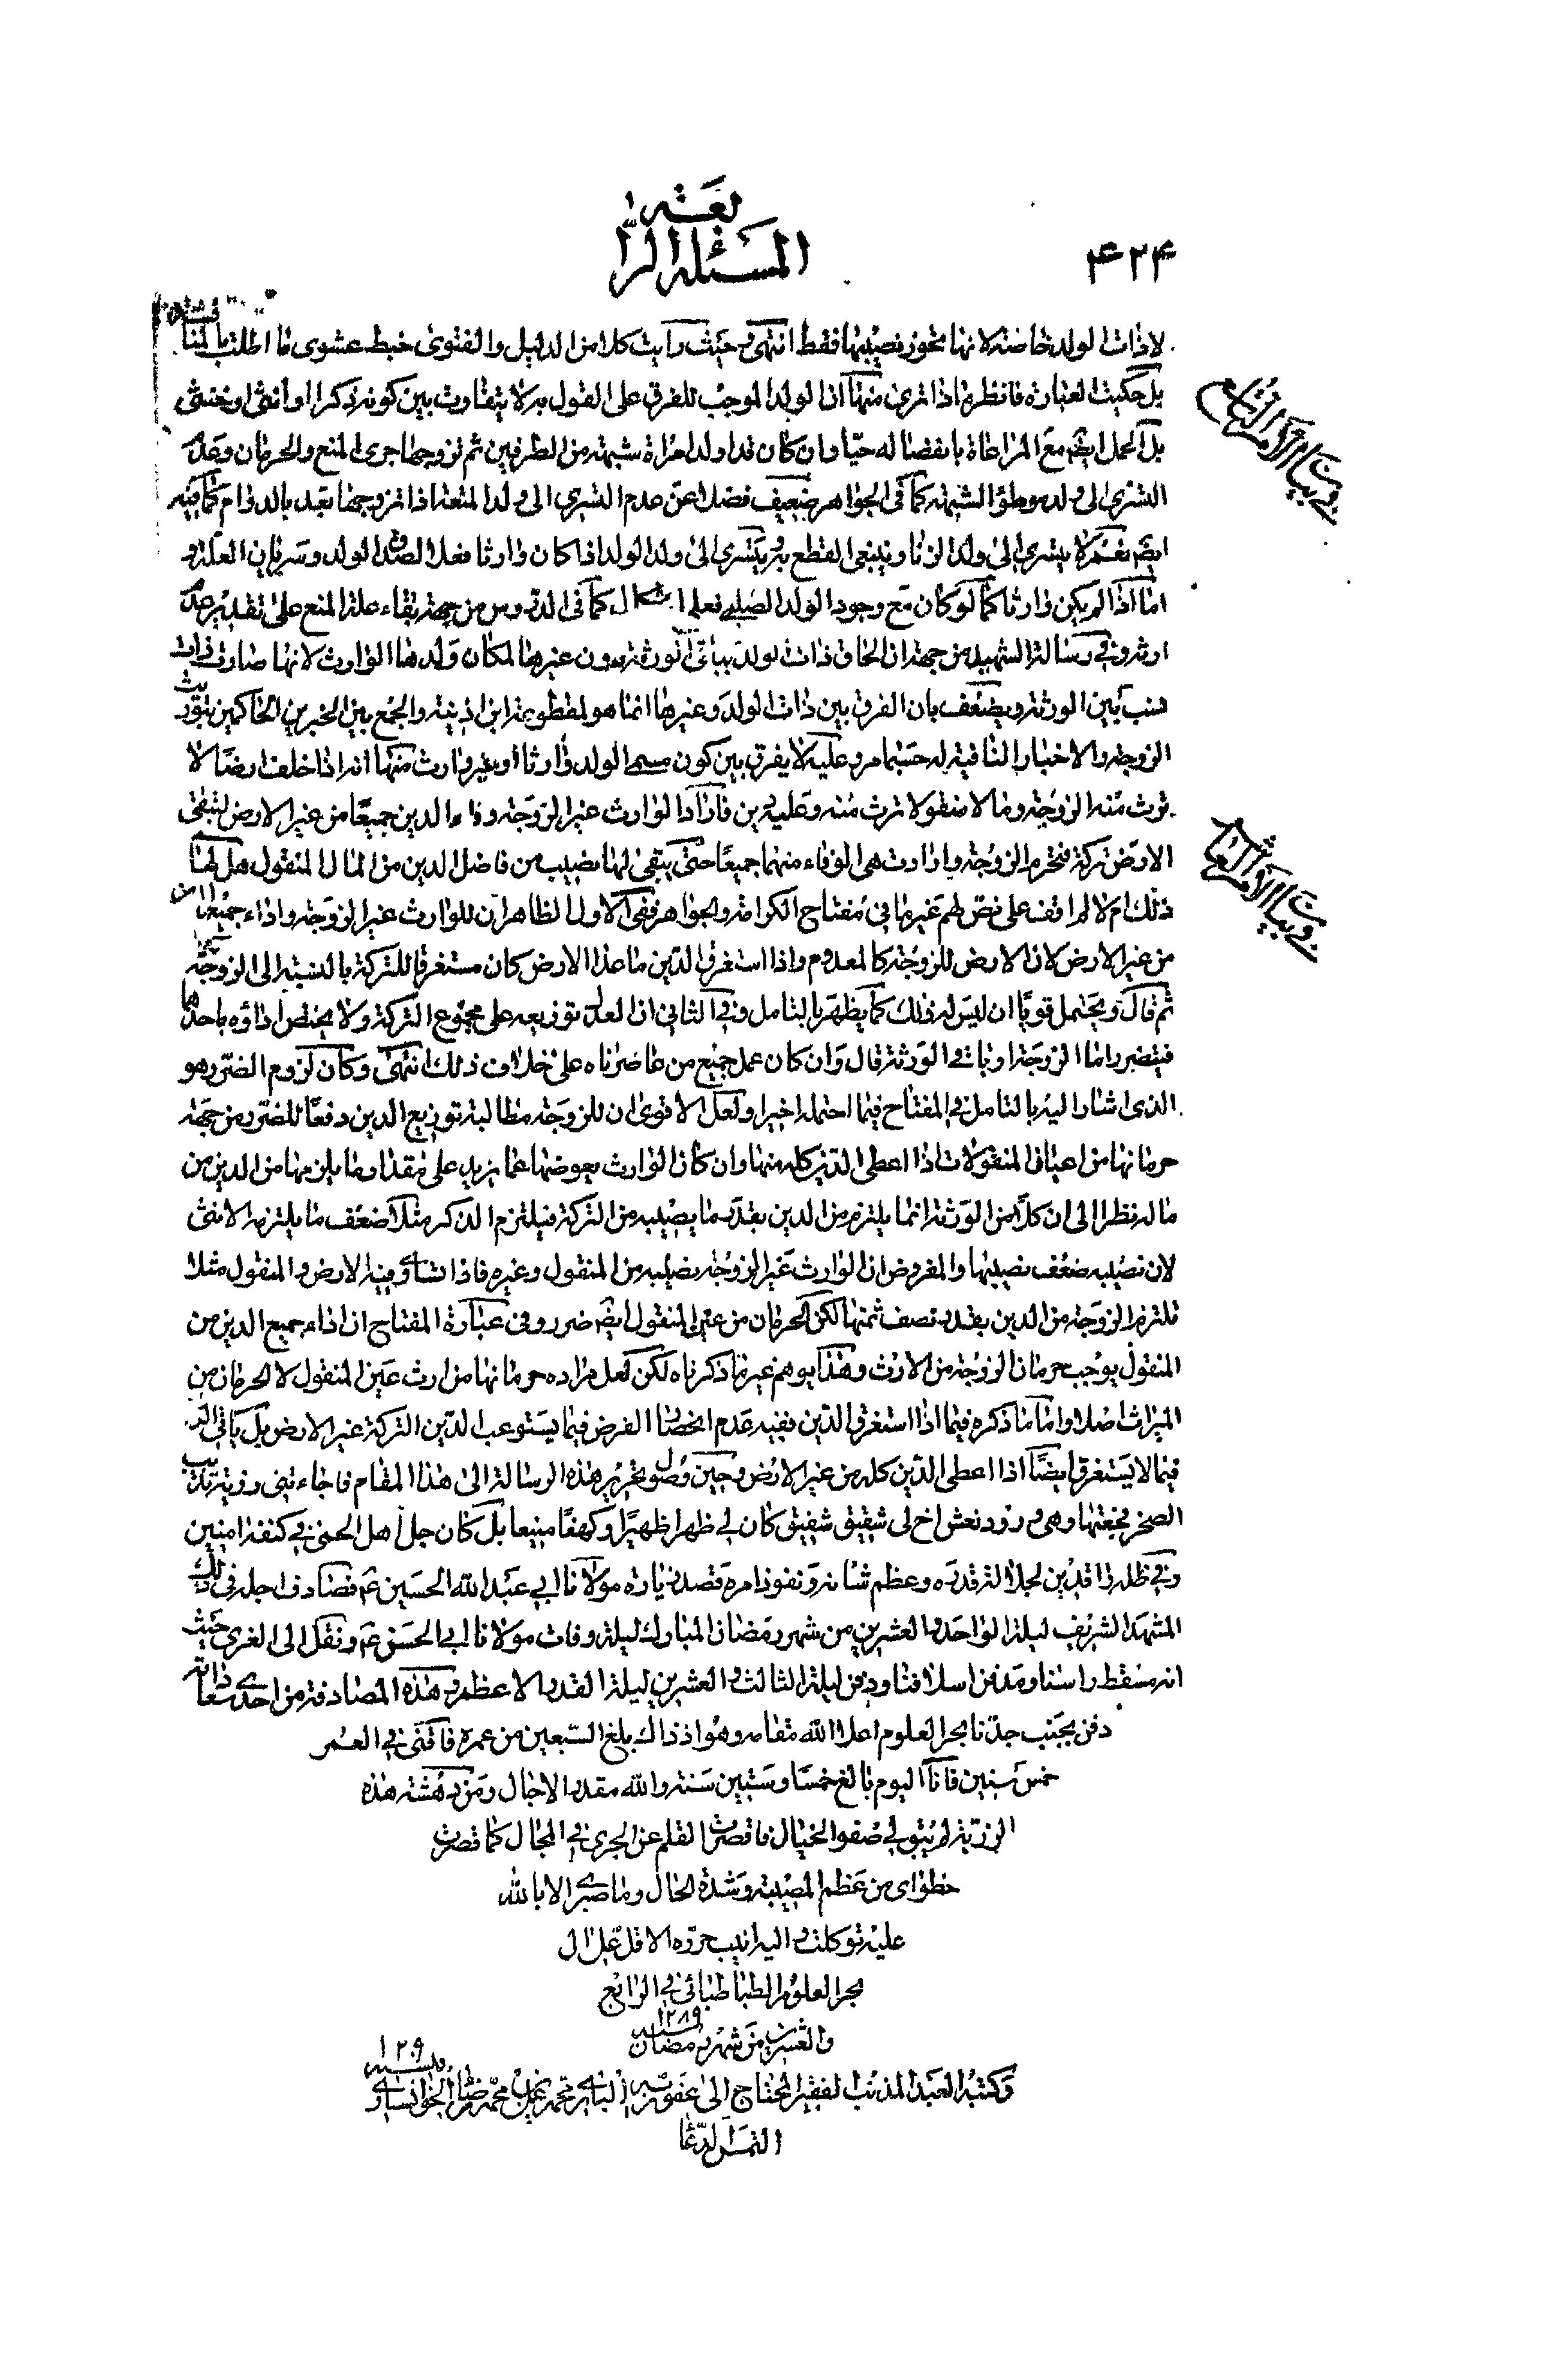 ۴۲۴
المسئلة الرابعة
لا ذات الولد خاصة لانها تحوز نصيبها فقط انتهى وحيث رايت كلا من الدليل والفتوى خبط عشوى ما اطلت بالمناقشة
بل حكيت العبارة فانظر ماذا ترى منها ان الولد الموجب للفرق على القول به لا يتفاوت بين كونه ذكرا او انثى او خنثى
بل الحمل ايضا مع المراعاة بانفصاله حيّا وان كان قد اولد امراة شبهة من الطرفين ثم تزوجها جرى المنع والحرمان وعدم
التسرى الى ولد موطؤ الشبهة كما في الجواهر ضعيف فضلا عن عدم التسرى الى ولد المتعة اذا تزوجها بعد بالدوام كما فيه
ايضا نعم لا يتسرى الى ولد الزنا وينبغى القطع به ويتسرى الى ولد الولد اذا كان وارثا فعلا لصدق الولد وسريان العلة و
اما اذا لم يكن وارثا كما لو كان مع وجود الولد الصلبي فعلى اشكال كما في الدروس من جهة بقاء علة المنع على تقدير عدم
ارثه وفي رسالة الشهيد من جهة ان الحاق ذات الولد بباقى الورثة دون غيرها لمكان ولدها الوارث لانها صارت ذات
نسب بين الورثة ويضعف بان الفرق بين ذات الولد وغيرها انما هو لمقطوعة ابن اذينة والجمع بين الخبرين الحاكمين بتوريث
الزوجة والاخبار النافية له حسبما مر وعليه لا يفرق بين كون مسمى الولد وارثا او غير وارث منها انه اذا خلف ارضا لا
ترث منه الزوجة ومالا منقولا ترث منه وعليه دين فاراد الوارث غير الزوجة وفاء الدين جميعا من غير الارض لتبقى
الارض تركة فتحرم الزوجة وارادت هي الوفاء منهما جميعا حتى يبقى لها نصيب من فاضل الدين من المال المنقول هل لها
ذلك ام لا لم اقف على نص لهم غير ما في مفتاح الكرامة والجواهر ففى الاول الظاهر ان للوارث غير الزوجة واداء جميع الدين
من غير الارض لان الارض للزوجة كالمعدوم واذا استغرق الدين ما عدا الارض كان مستغرقا للتركة بالنسبة الى الزوجة
ثم قال ويحتمل قويا ان ليس له ذلك كما يظهر بالتامل وفي الثاني ان العدل توزيعه على مجموع التركة ولا يختص اداؤه باحدها
فيتضرر اما الزوجة او باقى الورثة قال وان كان عمل جميع من عاصرناه على خلاف ذلك انتهى وكان لزوم الضرر هو
الذى اشار اليه بالتامل في المفتاح فيما احتمله اخيرا ولعل الاقوى ان للزوجة مطالبة توزيع الدين دفعا للضرر من جهة
حرمانها من اعيان المنقولات اذا اعطى الدين كله منها وان كان الوارث يعوضها عما يزيد على مقدار ما يلزمها من الدين من
ماله نظرا الى ان كلا من الورثة انما يلتزم من الدين بقدر ما يصيبه من التركة فيلتزم الذكر مثلا ضعف ما يلتزمه الانثى
لان نصيبه ضعف نصيبها والمفروض ان الوارث غير الزوجة نصيبه من المنقول وغيره فاذا تساوى فيه الارض والمنقول مثلا
تلتزم الزوجة من الدين بقدر نصف ثمنها لكن الحرمان من عين المنقول ايضا ضرر وفي عبارة المفتاح ان اداء جميع الدين من
المنقول يوجب حرمان الزوجة من الارث وهذا يوهم غير ما ذكرناه لكن لعل مراده حرمانها من ارث عين المنقول لا الحرمان من
الميراث اصلا واما ما ذكره فيما اذا استغرق الدين ففيه عدم انحصار الفرض فيما يستوعب الدين التركة غير الارض بل ياتى
فيما لا يستغرق ايضا اذا اعطى الدين كله من غير الارض وحين وصول تحرير هذه الرسالة الى هذا المقام فاجاءتنى رزية تذيب
الصخر فجعتها وهى ورود نعش اخ لى شقيق شفيق كان لي ظهرا ظهيرا وكهفا منيعا بل كان جل اهل الحمى في كنفه امنين
وفي ظله راقدين لجلالة قدره وعظم شانه ونفوذ امره قصد زيارة مولانا ابي عبد الله الحسين ع فصادف اجله في ذلك
المشهد الشريف ليلة الواحد والعشرين من شهر رمضان المبارك ليلة وفات مولانا ابي الحسن ع ونقل الى الغرى حيث
انه مسقط راسنا ومدفن اسلافنا ودفن ليلة الثالث والعشرين ليلة القدر الاعظم وهذه المصادفة من احدى سعاداته
دفن بجنب جدنا بحر العلوم اعلا الله مقامه وهو اذ ذاك بلغ السبعين من عمره فاقنى في العمر
خمس سنين فانا اليوم بالغ خمسا وستين سنة والله مقدر الاجال ومن دهشة هذه
الرزية لم يبق لي صفو الخيال فاقصرت القلم عن الجرى في المجال كما قصرت
خطواى من عظم المصيبة وشدة الحال وما صبرى الا بالله
عليه توكلت واليه انيب حرره الاقل ال
بحر العلوم الطباطبائى في الرابع
والعشرين من شهر رمضان ١٢٨٩
وكتبه العبد المذنب الفقير المحتاج الى عفو ربه البارى محمد بن محمد رضا الخوانسارى
التماس الدعا